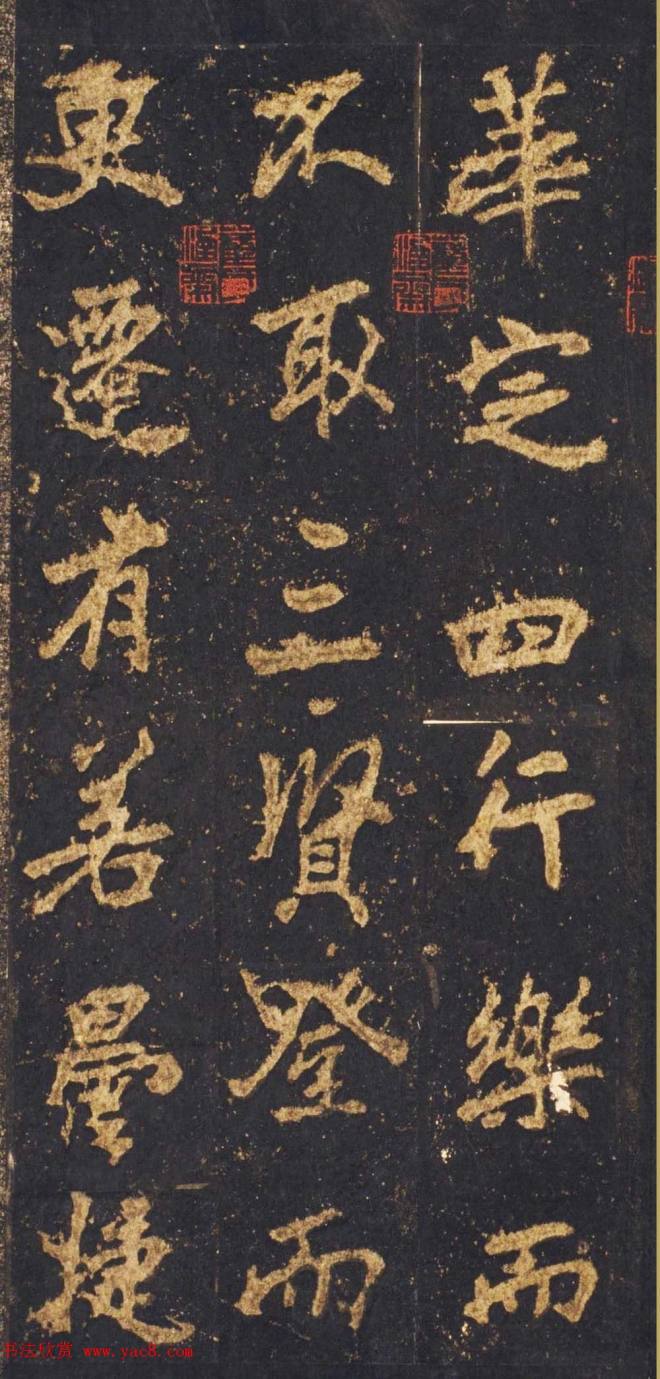 華定四行樂而
不取三賢登而
更遷有若曇捷
书法欣赏 www.yac8.com